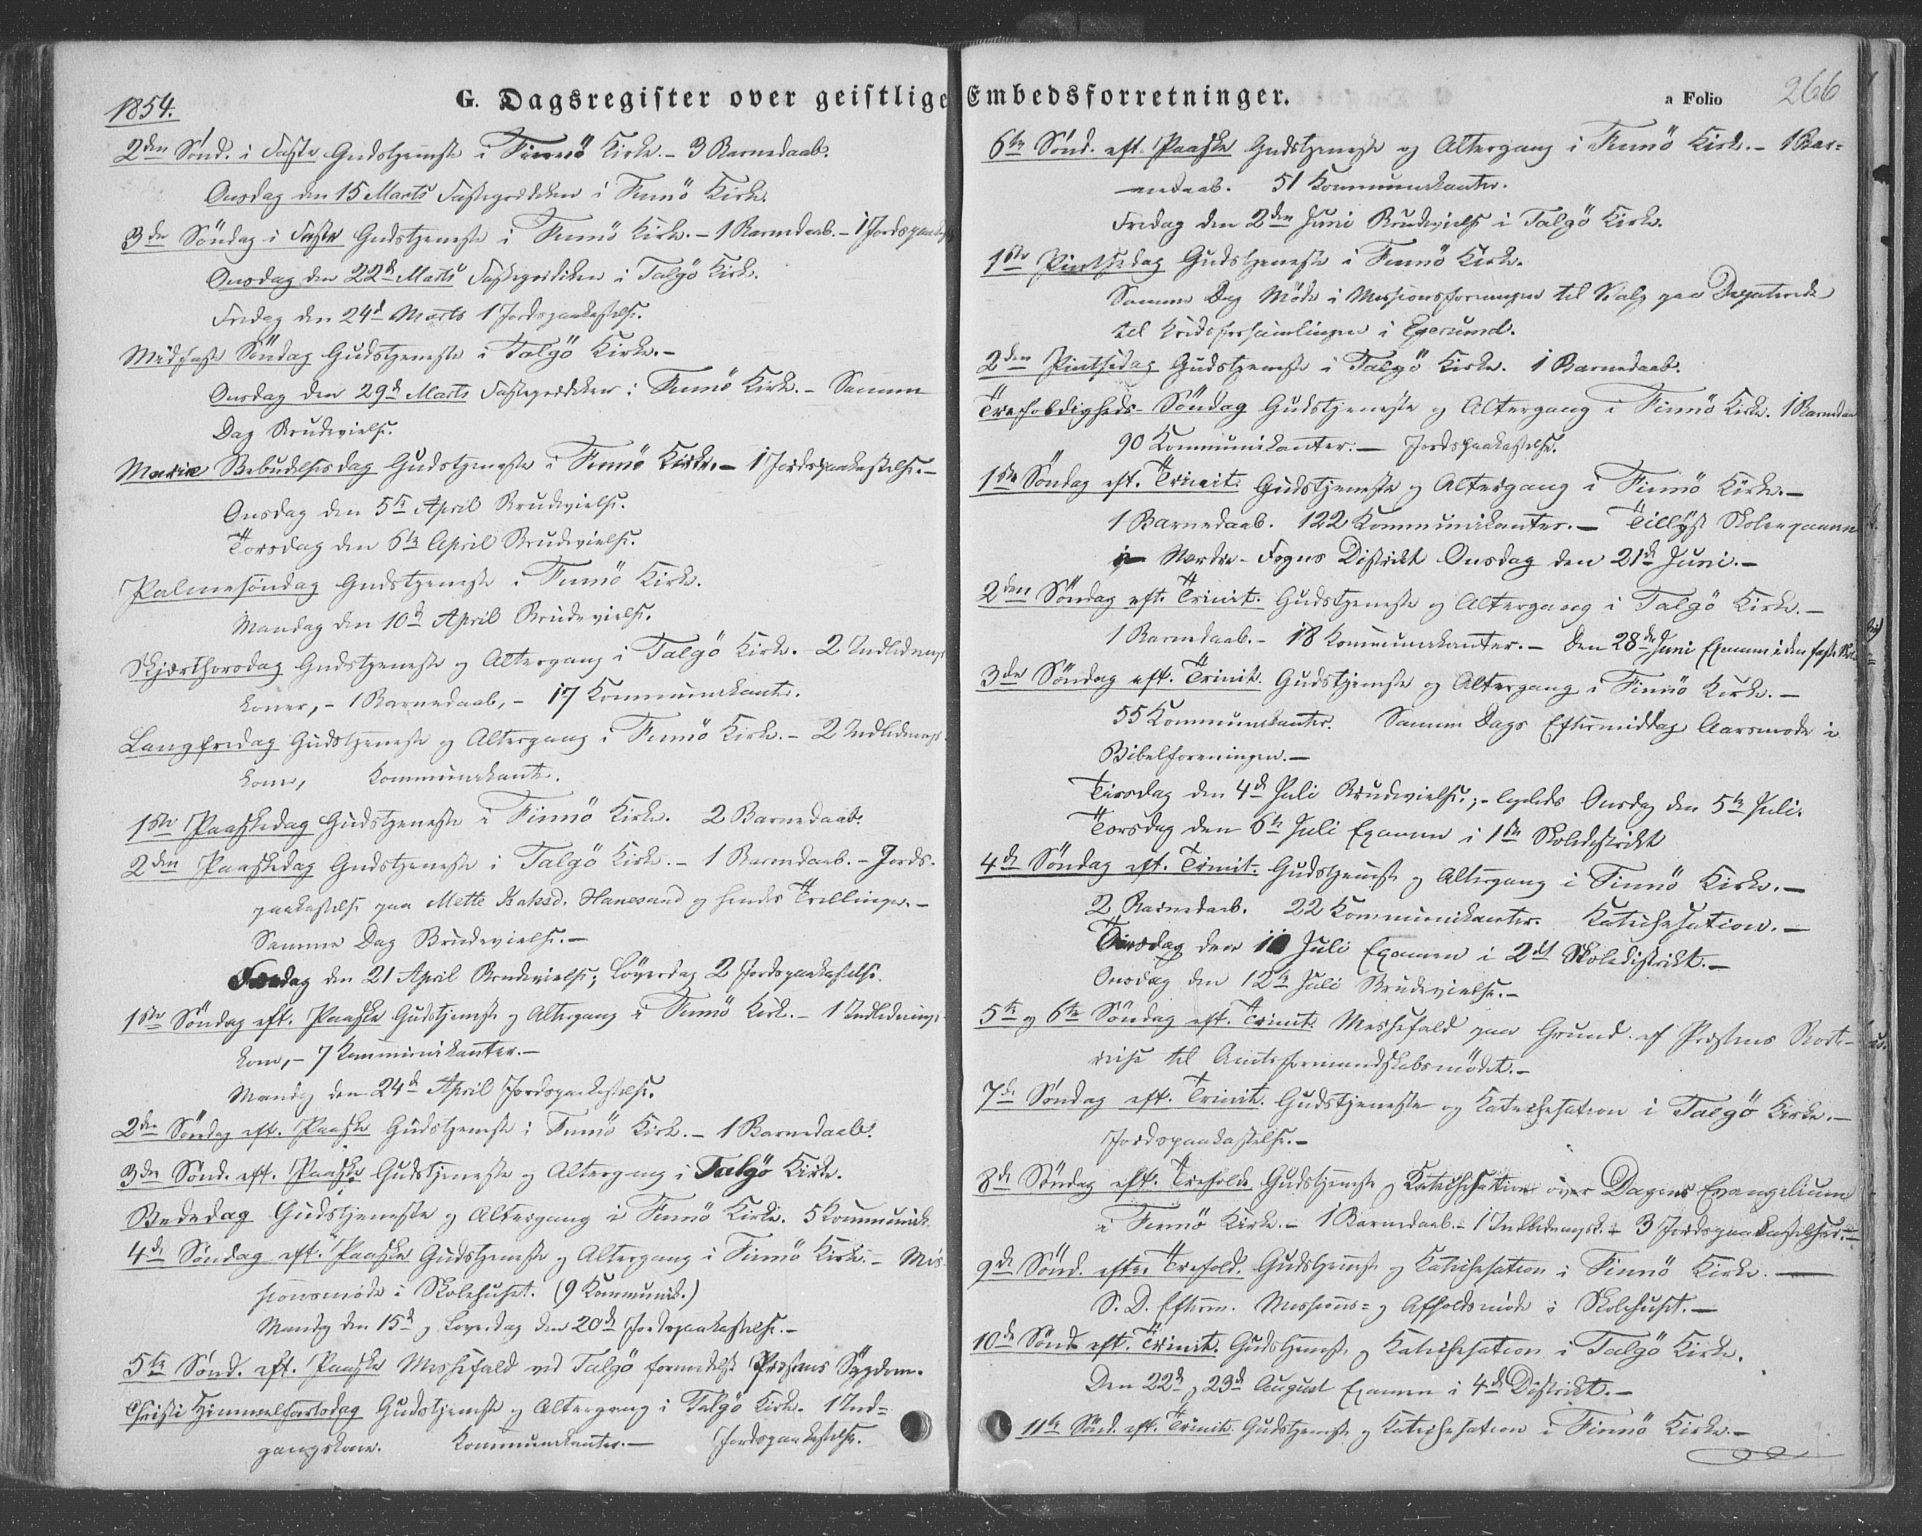 1854.
G. Dagsregister over geistlige Embedsforretninger.
a Folio 266
2den Sönd. i Faste Gudstjeneste i Finnö Kirke. – 3 Barnedaab.
Onsdag den 15 Marts Fasteprediken i Finnö Kirke.
3de Söndag i Faste Gudstjeneste i Finnö Kirke. – 1 Barnedaab. – 1 Jordspaakast
Onsdag den 22de Marts Fasteprediken i Talgö Kirke.
Fredag den 24d Marts 1 Jordspaakastelse.
Midfaste Söndag Gudstjeneste i Talgö Kirke. –
Onsdag den 29de Marts Fasteprediken i Finnö Kirke. – Samme
Dag Brudevielse.
Mariæ Bebudelsesdag Gudstjeneste i Finnö Kirke. – 1 Jordspaakastelse. –
Onsdag den 5te April Brudevielse.
Torsdag den 6te April Brudevielse.
Palmesöndag Gudstjeneste i Finnö Kirke.
Mandag den 10de April Brudevielse.
Skjærthorsdag Gudstjeneste og Altergang i Talgö Kirke. – 2 Indlednings
koner, – 1 Barnedaab, – 17 Kommunikanter.
Langfredag Gudstjeneste og Altergang i Finnö Kirke. – 2 Indlednings
koner, Kommunikanter.
1ste Paaskedag Gudstjeneste i Finnö Kirke. 2 Barnedaab.
2den Paaskedag Gudstjeneste i Talgö Kirke. – 1 Barnedaab. – Jords-
paakastelse paa Mette Hanesand og hendes Trillinger. –
Samme Dag Brudevielse. –
Fredag den 21 April Brudevielse; Löverdag 2 Jordspaakastelse.
1ste Söndag eft. Paaske Gudstjeneste og Altergang i Finnö Kirke. – 1 Indlednings
kone, – 7 Kommunikanter. –
Mandag den 24de April Jordspaakastelse.
2den Söndag eft. Paaske Gudstjeneste i Finnö Kirke. – 1 Barnedaab.
3de Sönd. eft. Paaske Gudstjeneste og Altergang i Talgö Kirke.
Bededag Gudstjeneste og Altergang i Finnö Kirke. 5 Kommunik.
4de Söndag eft. Paaske Gudstjeneste og Altergang i Finnö Kirke. – Mis-
sionsmöde i Skolehuset. (9 Kommunik.)
Mandag den 15de og Löverdag den 20de Jordspaakastelse. –
5te Sönd. eft. Paaske Messefald ved Talgö formedelst Præstens Sygdom.
Christi Himmelfartsdag Gudstjeneste og Altergang i Talgö Kirke. 1 Ind-
gangskone. Kommunikanter. – Jordspaakastelse.
6te Sönd. eft. Paaske Gudstjeneste og Altergang i Finnö Kirke. – 1 Bar-
nedaab. 51 Kommunikanter.
Fredag den 2den Juni Brudevielse i Talgö Kirke.
1ste Pintsedag Gudstjeneste i Finnö Kirke.
Samme Dag Möde i Missionsforeningen til Valg paa Deputerede
til Kredsforsamlingen i Egersund.
2den Pintsedag Gudstjeneste i Talgö Kirke. 1 Barnedaab.
Trefoldigheds-Söndag Gudstjeneste og Altergang i Finnö Kirke. 1 Barnedaa
90 Kommunikanter. – Jordspaakastelse.
1ste Söndag eft. Trinit. Gudstjeneste og Altergang i Finnö Kirke. –
1 Barnedaab. 122 Kommunikanter. – Tillyst Skoleexamen
i Nordre-Fogns Distrikt Onsdag den 21de Juni. –
2den Söndag eft. Trinit. Gudstjeneste og Altergang i Talgö Kirke. –
1 Barnedaab. – 18 Kommunikanter. – Den 28de Juni Examen i den faste Skole
3de Söndag eft. Trinit. Gudstjeneste og Altergang i Finnö Kirke. –
55 Kommunikanter. Samme Dags Eftermiddag Aarsmöde i
Bibelforeningen. –
Tirsdag den 4de Juli Brudevielse; – ligeledes Onsdag den 5te Juli.
Torsdag den 6te Juli Examen i 1ste Skoledistrikt
4de Söndag eft. Trinit. Gudstjeneste og Altergang i Finnö Kirke. –
2 Barnedaab. 22 Kommunikanter. Katechesation. –
Tirsdag den 11 Juli Examen i 2det Skoledistrikt. –
Onsdag den 12te Juli Brudevielse. –
5te og 6te Söndag eft. Trinit. Messefald paa Grund af Præstens Bort-
reise til Amtsformandskabsmödet. –
7de Söndag eft. Trinit. Gudstjeneste og Katechesation i Talgö Kirke. –
Jordspaakastelse. –
8de Söndag eft. Trefold. Gudstjeneste og Katechesation over Dagens Evangelium
i Finnö Kirke. – 1 Barnedaab. – 1 Indledningsk. 3 Jordspaakastelser. –
9de Sönd. efter Trefold. Gudstjeneste og Katechesation i Finnö Kirke. –
S. D. Efterm. Missions- og Afholdsmöde i Skolehuset. –
10de Sönd. eft. Trinit. Gudstjeneste og Katechesation i Talgö Kirke.
Den 22de og 23de August Examen i 4de Distrikt. –
11te Sönd. eft. Trinit. Gudstjeneste og Katechesation i Finnö Kirke. –